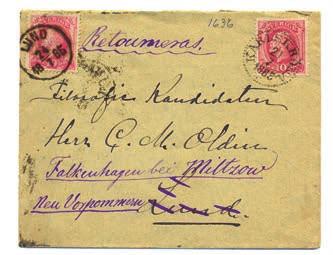 1636
LUND
SVERIGE
10
Retourneras.
Filosofie Kandidaten
Herr C. M. Oldin
Falkenhagen bei Miltzow
Neu Vorpommern Lund.